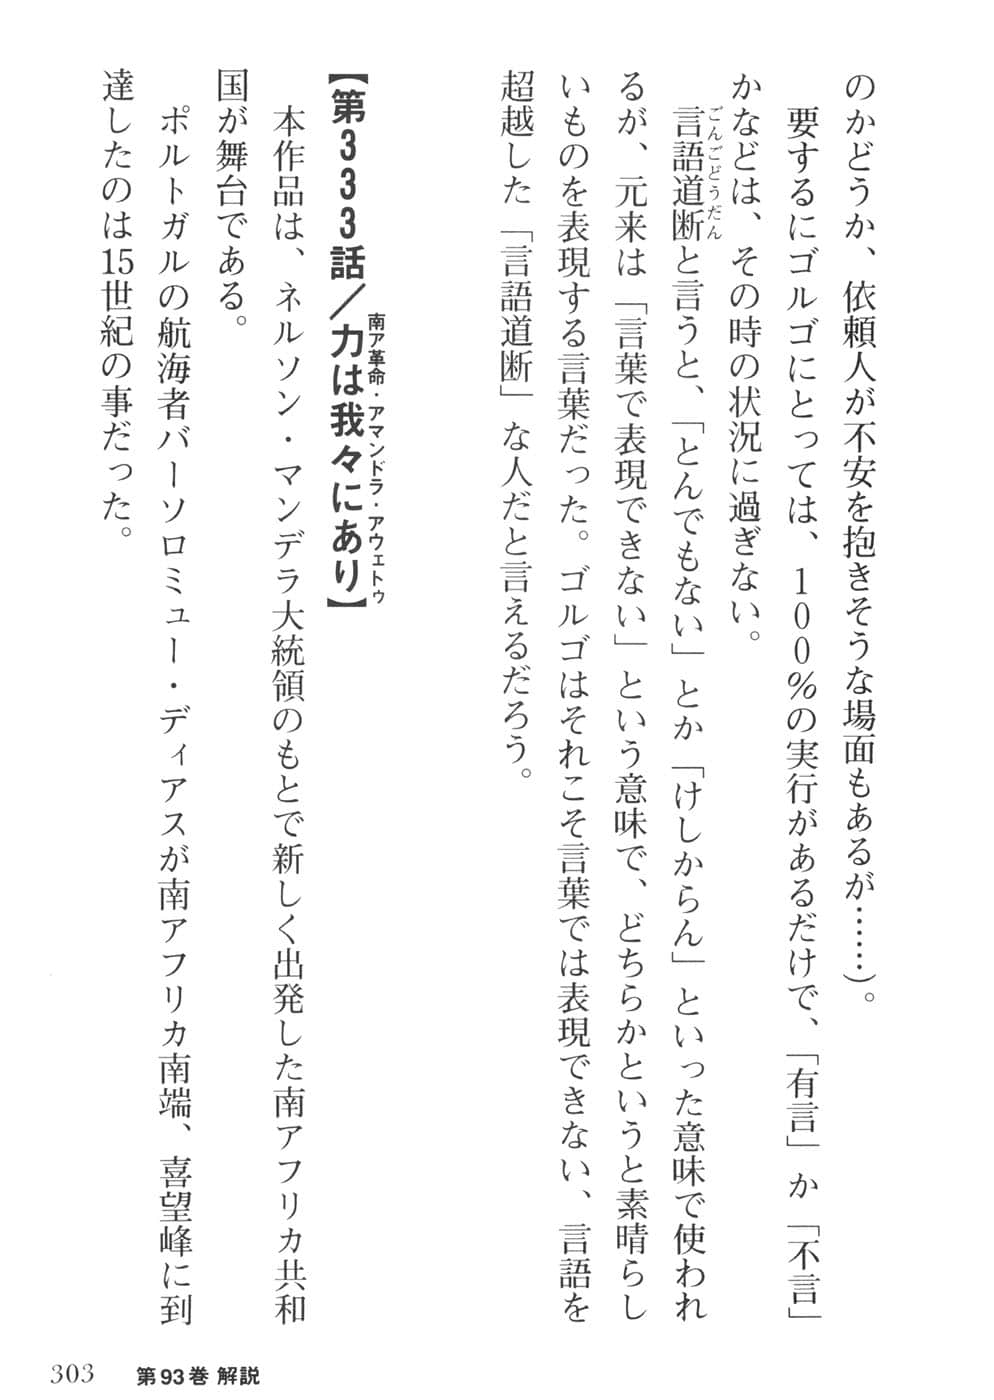 のかどうか、依頼人が不安を抱きそうな場面もあるが……）。
要するにゴルゴにとっては、100％の実行があるだけで、「有言」か「不言」
かなどは、その時の状況に過ぎない。
言語道断と言うと、「とんでもない」とか「けしからん」といった意味で使われ
ごんごどうだん
るが、元来は「言葉で表現できない」という意味で、どちらかというと素晴らし
いものを表現する言葉だった。ゴルゴはそれこそ言葉では表現できない、言語を
超越した「言語道断」な人だと言えるだろう。
【第333話／力は我々にあり】
南ア革命・アマンドラ・アウェトゥ
本作品は、ネルソン・マンデラ大統領のもとで新しく出発した南アフリカ共和
国が舞台である。
ポルトガルの航海者バーソロミュー・ディアスが南アフリカ南端、喜望峰に到
達したのは15世紀の事だった。
303 第93巻 解説